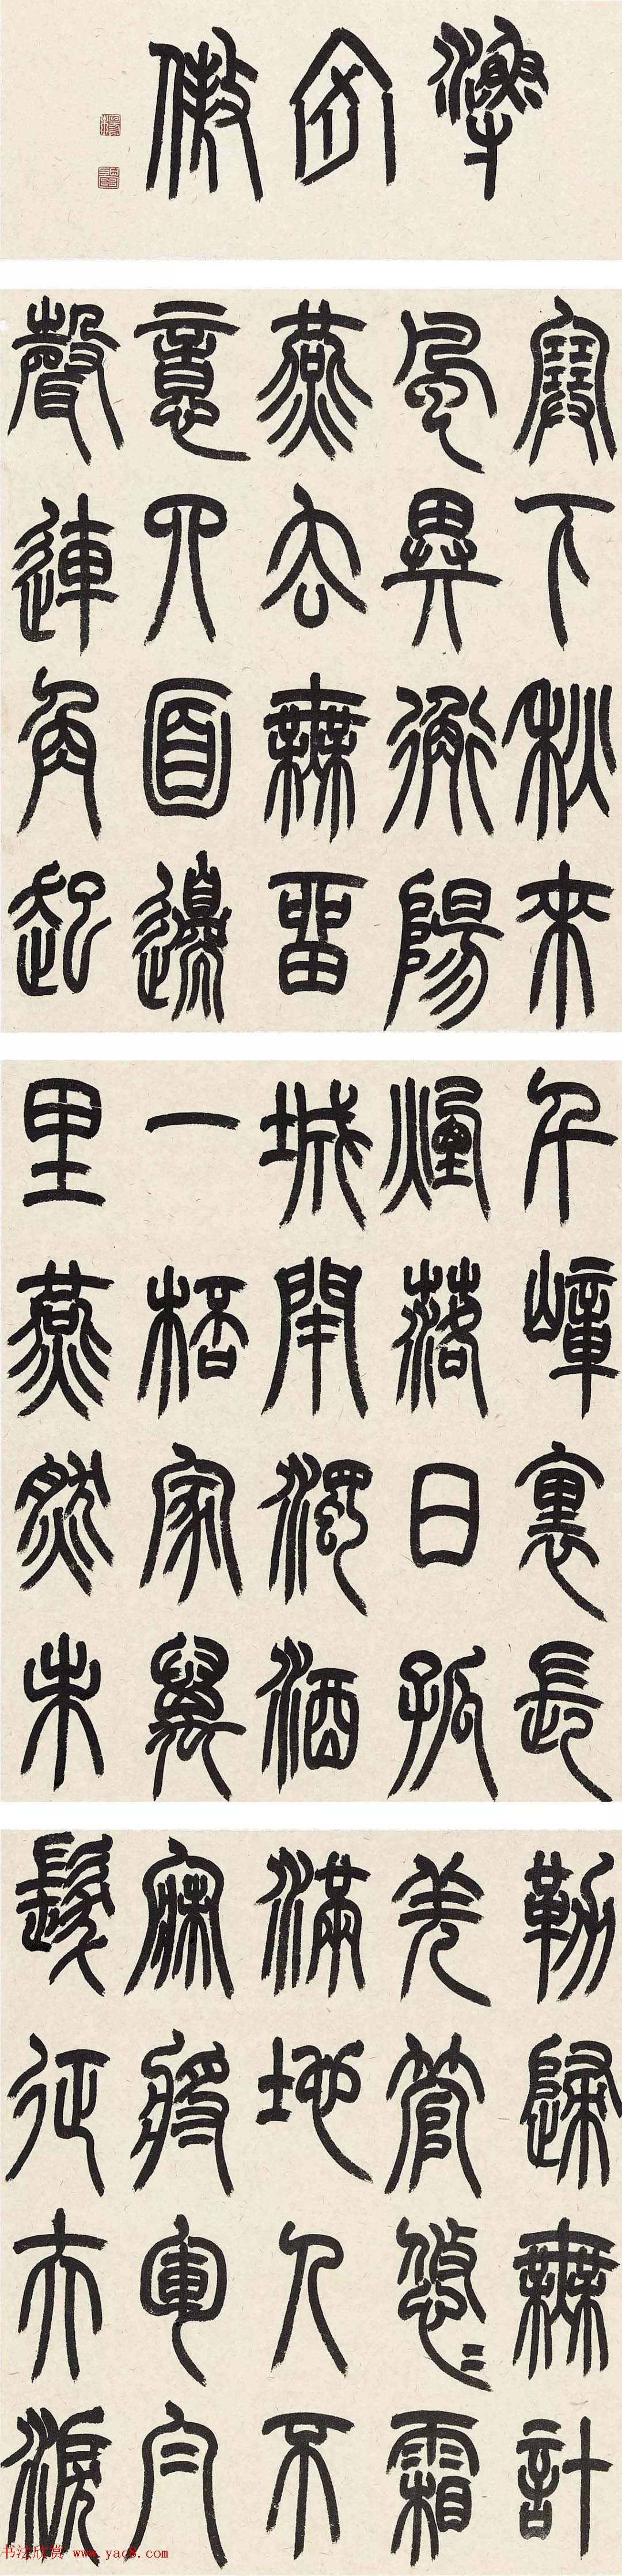 漁家傲
塞下秋來
風異衡陽
燕去無留
意四面邊
聲連角起
千嶂裏長
煙落日孤
城閉濁酒
一桮家萬
里燕然未
勒歸無計
羌管悠〻霜
滿地人不
寐將軍白
髮征夫淚
书法欣赏 www.yac8.com